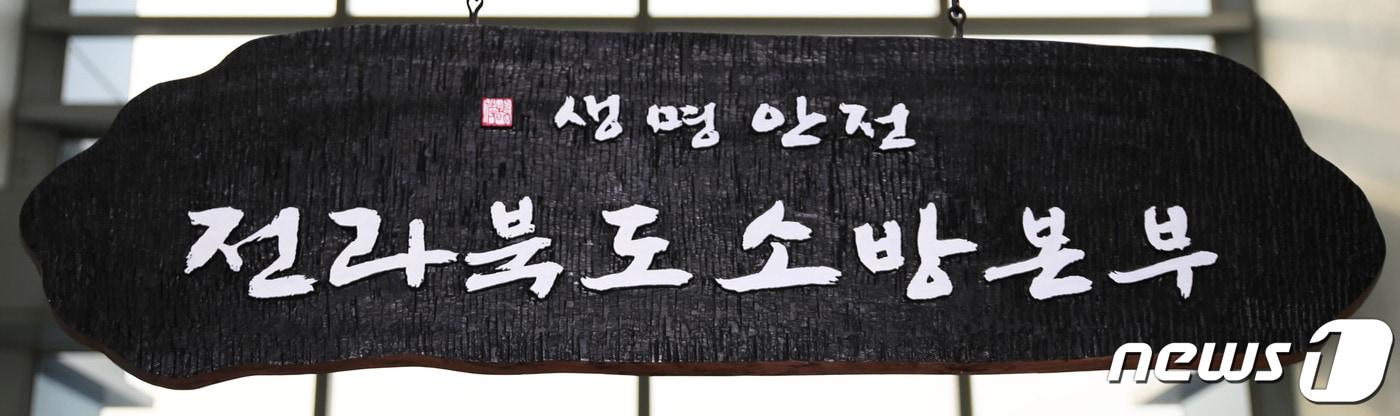 생명안전
전라북도소방본부
news1